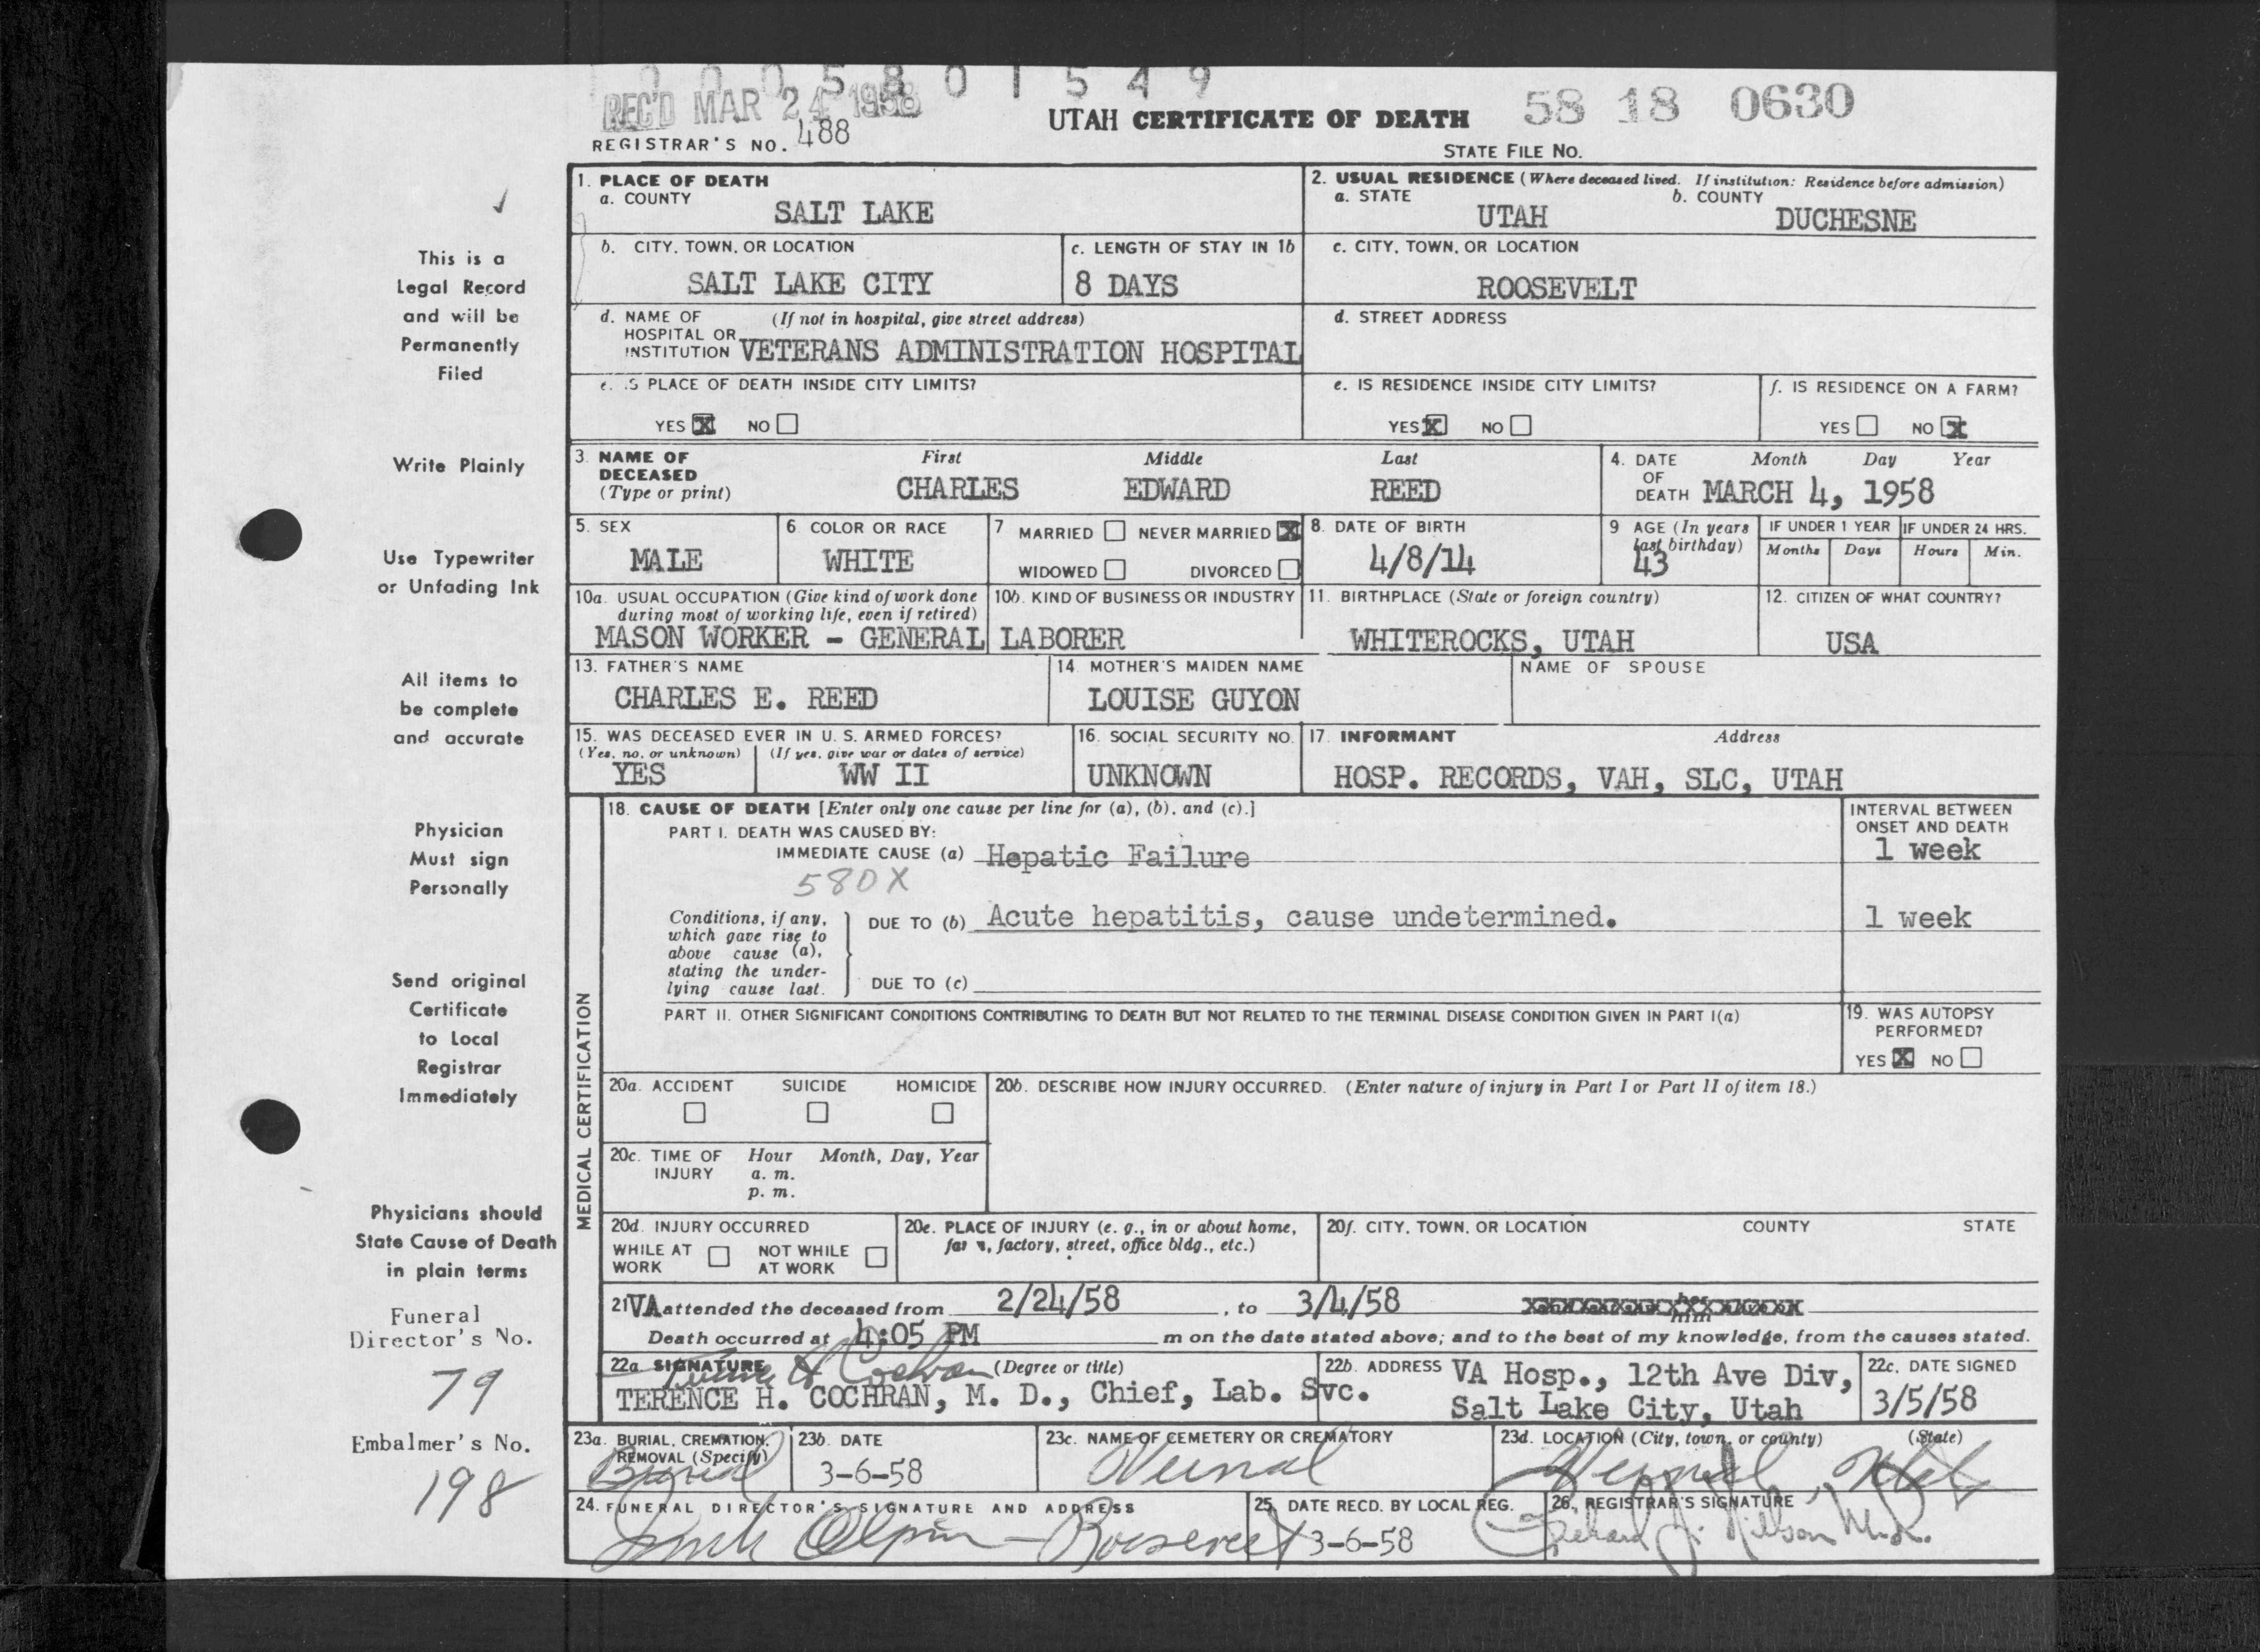 0 0 0 5 8 0 1 5 4 9
REC'D MAR 24 1958
UTAH CERTIFICATE OF DEATH
58 18 0630
REGISTRAR'S NO. 488
STATE FILE NO.
This is a
Legal Record
and will be
Permanently
Filed
Write Plainly
Use Typewriter
or Unfading Ink
All items to
be complete
and accurate
Physician
Must sign
Personally
Send original
Certificate
to Local
Registrar
Immediately
Physicians should
State Cause of Death
in plain terms
Funeral
Director's No.
79
Embalmer's No.
198
1. PLACE OF DEATH
a. COUNTY
SALT LAKE
2. USUAL RESIDENCE (Where deceased lived. If institution: Residence before admission)
a. STATE b. COUNTY
UTAH DUCHESNE
b. CITY, TOWN, OR LOCATION
SALT LAKE CITY
c. LENGTH OF STAY IN 1b
8 DAYS
c. CITY, TOWN, OR LOCATION
ROOSEVELT
d. NAME OF (If not in hospital, give street address)
HOSPITAL OR
INSTITUTION VETERANS ADMINISTRATION HOSPITAL
d. STREET ADDRESS
e. IS PLACE OF DEATH INSIDE CITY LIMITS?
YES X NO
e. IS RESIDENCE INSIDE CITY LIMITS?
YES X NO
f. IS RESIDENCE ON A FARM?
YES NO X
3. NAME OF First Middle Last
DECEASED
(Type or print) CHARLES EDWARD REED
4. DATE Month Day Year
OF
DEATH MARCH 4, 1958
5. SEX
MALE
6. COLOR OR RACE
WHITE
7 MARRIED NEVER MARRIED X
WIDOWED DIVORCED
8. DATE OF BIRTH
4/8/14
9 AGE (In years
last birthday)
43
IF UNDER 1 YEAR
Months Days
IF UNDER 24 HRS.
Hours Min.
10a. USUAL OCCUPATION (Give kind of work done
during most of working life, even if retired)
10b. KIND OF BUSINESS OR INDUSTRY
MASON WORKER - GENERAL LABORER
11. BIRTHPLACE (State or foreign country)
WHITEROCKS, UTAH
12. CITIZEN OF WHAT COUNTRY?
USA
13. FATHER'S NAME
CHARLES E. REED
14. MOTHER'S MAIDEN NAME
LOUISE GUYON
NAME OF SPOUSE
15. WAS DECEASED EVER IN U. S. ARMED FORCES?
(Yes, no, or unknown) (If yes, give war or dates of service)
YES WW II
16. SOCIAL SECURITY NO.
UNKNOWN
17. INFORMANT Address
HOSP. RECORDS, VAH, SLC, UTAH
MEDICAL CERTIFICATION
18. CAUSE OF DEATH [Enter only one cause per line for (a), (b), and (c).]
INTERVAL BETWEEN
ONSET AND DEATH
PART I. DEATH WAS CAUSED BY:
IMMEDIATE CAUSE (a) Hepatic Failure 1 week
580X
Conditions, if any,
which gave rise to
above cause (a),
stating the under-
lying cause last.
DUE TO (b) Acute hepatitis, cause undetermined. 1 week
DUE TO (c)
PART II. OTHER SIGNIFICANT CONDITIONS CONTRIBUTING TO DEATH BUT NOT RELATED TO THE TERMINAL DISEASE CONDITION GIVEN IN PART I(a)
19. WAS AUTOPSY
PERFORMED?
YES X NO
20a. ACCIDENT SUICIDE HOMICIDE
20b. DESCRIBE HOW INJURY OCCURRED. (Enter nature of injury in Part I or Part II of item 18.)
20c. TIME OF Hour Month, Day, Year
INJURY a. m.
p. m.
20d. INJURY OCCURRED
WHILE AT NOT WHILE
WORK AT WORK
20e. PLACE OF INJURY (e. g., in or about home,
farm, factory, street, office bldg., etc.)
20f. CITY, TOWN, OR LOCATION COUNTY STATE
21 VA attended the deceased from 2/24/58, to 3/4/58
Death occurred at 4:05 PM m on the date stated above; and to the best of my knowledge, from the causes stated.
22a SIGNATURE Terence H Cochran (Degree or title)
TERENCE H. COCHRAN, M. D., Chief, Lab. Svc.
22b. ADDRESS VA Hosp., 12th Ave Div,
Salt Lake City, Utah
22c. DATE SIGNED
3/5/58
23a. BURIAL, CREMATION,
REMOVAL (Specify)
Burial
23b. DATE
3-6-58
23c. NAME OF CEMETERY OR CREMATORY
Vernal
23d. LOCATION (City, town, or county) (State)
Vernal, Utah
24. FUNERAL DIRECTOR'S SIGNATURE AND ADDRESS
Olpin - Roosevelt
25. DATE RECD. BY LOCAL REG.
3-6-58
26. REGISTRAR'S SIGNATURE
Richard J. Nilson M.D.